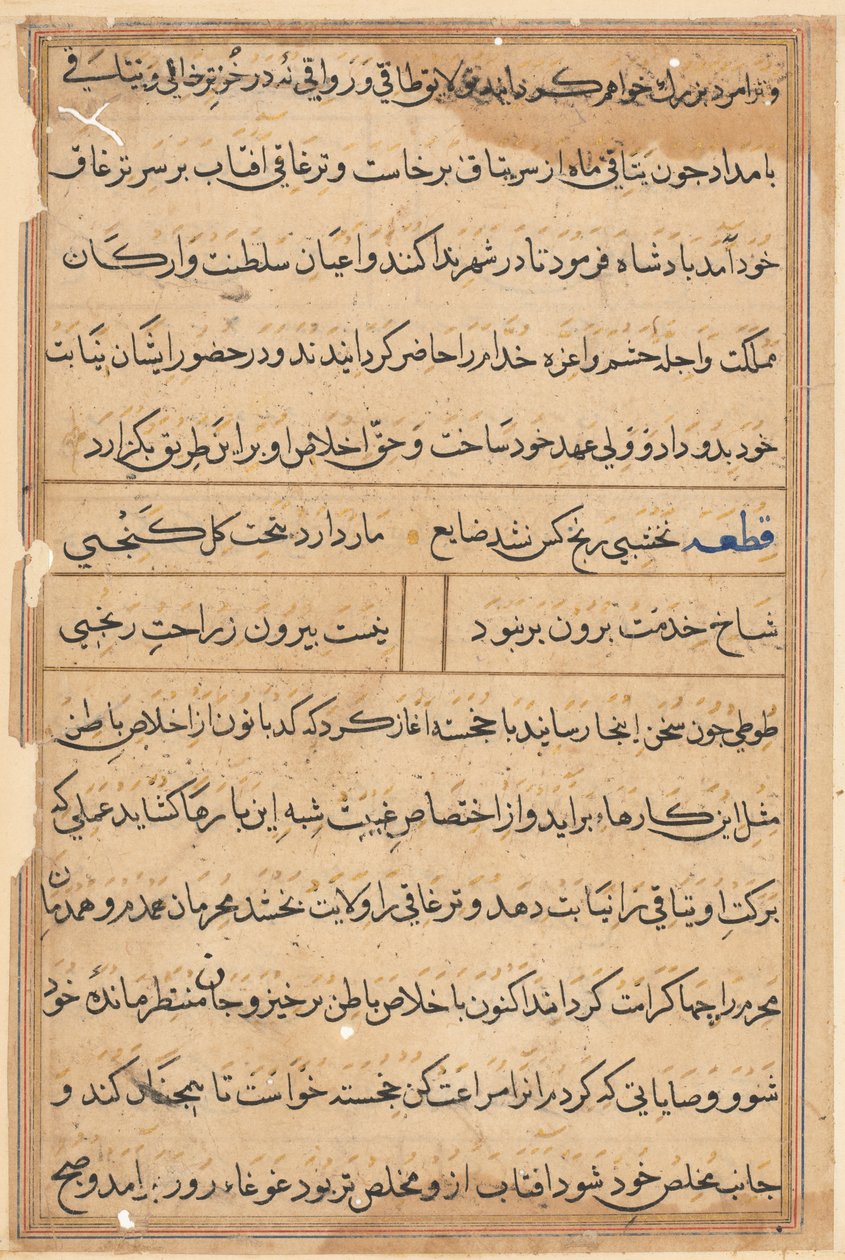 و ترا مرد بزرک خواهم کردانید تو لایق طاقی و رواقی نه درخور ترخاقی و یتاقی
بامداد جون یتاقی ماه از سر یتاق برخاست و ترغاقی افتاب بر سر ترغاق
خود آمد بادشاه فرمود تا در شهر ندا کنند و اعیان سلطنت و ارکان
مملکت و اجله حشم و اعزه خدام را حاضر کردانیدند و در حضور ایشان نیابت
خود بدو داد و ولی عهد خود ساخت و حقّ اخلاص او بر این طریق بکزارد
قطعه نخشبی رنج کس نشد ضایع مار دارد بتحت کل کنجی
شاخ خدمت برون بر نبود نیست بیرون ز راحت رنجی
طوطی جون سخن اینجا رسانید با خجسته اغاز کرد که کدبانون از اخلاص باطن
مثل این کارها براید و از اختصاص غیبت شبه این بارها کشاید عملی که
برکت او یتاقی را نیابت دهد و ترغاقی را ولایت بخشد محرمان همدم و همدمان
محرم را جها کرامت کرداند اکنون باخلاص باطن برخیز و جان منتظر ماندۀ خود
شو و وصایایی که کردم انرا مراعت کن خجسته خواست تا همجنان کند و
جانب مخلص خود شود افتاب ازو مخلص تر بود غوغاء روز برامد و صبح